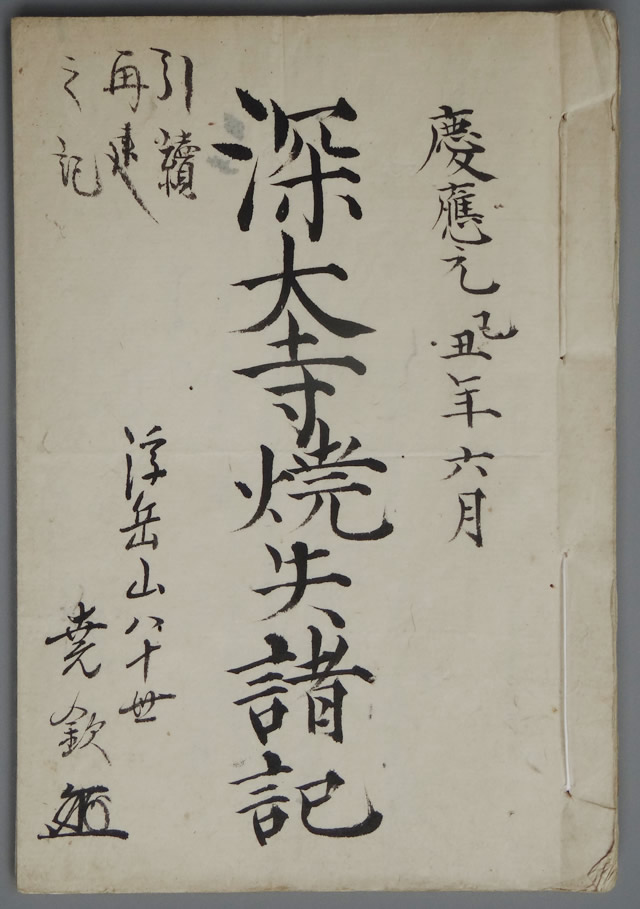 慶應元乙丑年六月
深大寺焼失諸記
引續
再建
之記
浮岳山八十世
堯欽